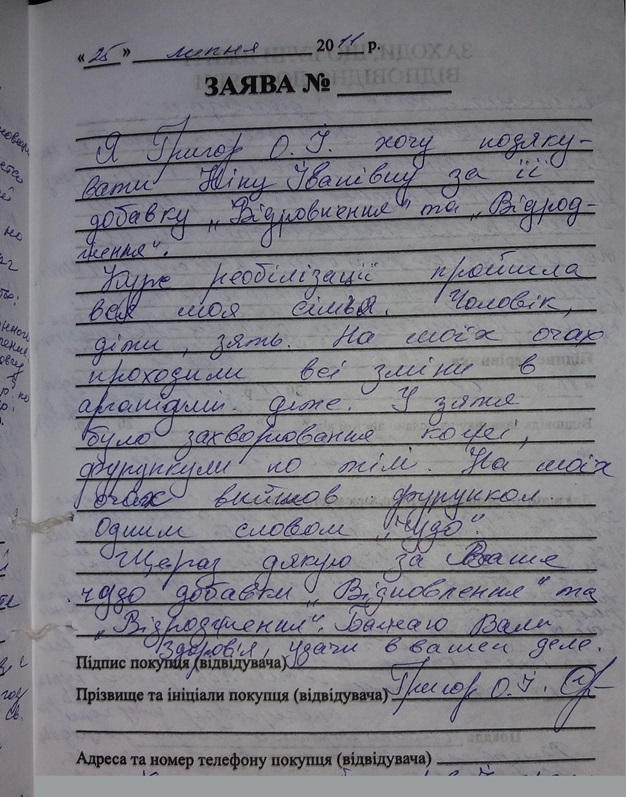 « 25 » липня 2011 р.
ЗАЯВА №
Я Григор О. І. хочу подяку-
вати Ніну Іванівну за її
добавку „Відровнення" та „Відрод-
ження".
Курс реобілізації пройшла
вся моя сімья. Чоловік,
діти, зять. На моїх очах
проходили всі зміни в
організмі діже. У зятя
було захворювання кожі,
фурункули по тілі. На моїх
очах вийшов фурункол
Одним словом „Чудо".
Щераз дякую за Ваше
чудо добавки „Відновлення" та
„Відродження". Бажаю Вам
Здоров'я, удачи в вашем деле.
Підпис покупця (відвідувача)
Прізвище та ініціали покупця (відвідувача) Григор О. І.
Адреса та номер телефону покупця (відвідувача)